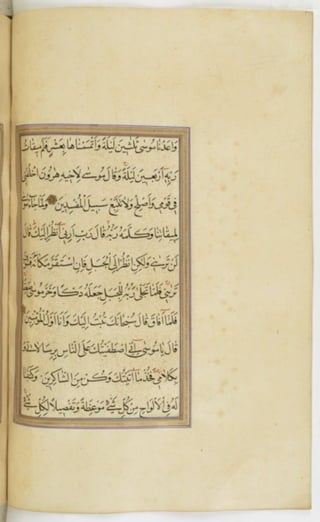 وَاعَدْنَا مُوسٰى ثَلٰثِينَ لَيْلَةً وَاَتْمَمْنَاهَا بِعَشْرٍ فَتَمَّ مِيقَاتُ
رَبِّهِ اَرْبَعِينَ لَيْلَةً وَقَالَ مُوسٰى لِاَخِيهِ هٰرُونَ اخْلُفْنِى
فِى قَوْمِى وَاَصْلِحْ وَلَا تَتَّبِعْ سَبِيلَ الْمُفْسِدِينَ وَلَمَّا جَاءَ مُوسٰى
لِمِيقَاتِنَا وَكَلَّمَهُ رَبُّهُ قَالَ رَبِّ اَرِنِى اَنْظُرْ اِلَيْكَ قَالَ
لَنْ تَرٰينِى وَلٰكِنِ انْظُرْ اِلَى الْجَبَلِ فَاِنِ اسْتَقَرَّ مَكَانَهُ فَسَوْفَ
تَرٰينِى فَلَمَّا تَجَلّٰى رَبُّهُ لِلْجَبَلِ جَعَلَهُ دَكًّا وَخَرَّ مُوسٰى صَعِقًا
فَلَمَّا اَفَاقَ قَالَ سُبْحَانَكَ تُبْتُ اِلَيْكَ وَاَنَا اَوَّلُ الْمُؤْمِنِينَ
قَالَ يَا مُوسٰى اِنِّى اصْطَفَيْتُكَ عَلَى النَّاسِ بِرِسَالَاتِى وَ
بِكَلَامِى فَخُذْ مَا اٰتَيْتُكَ وَكُنْ مِنَ الشَّاكِرِينَ وَكَتَبْنَا
لَهُ فِى الْاَلْوَاحِ مِنْ كُلِّ شَىْءٍ مَوْعِظَةً وَتَفْصِيلًا لِكُلِّ شَىْءٍ